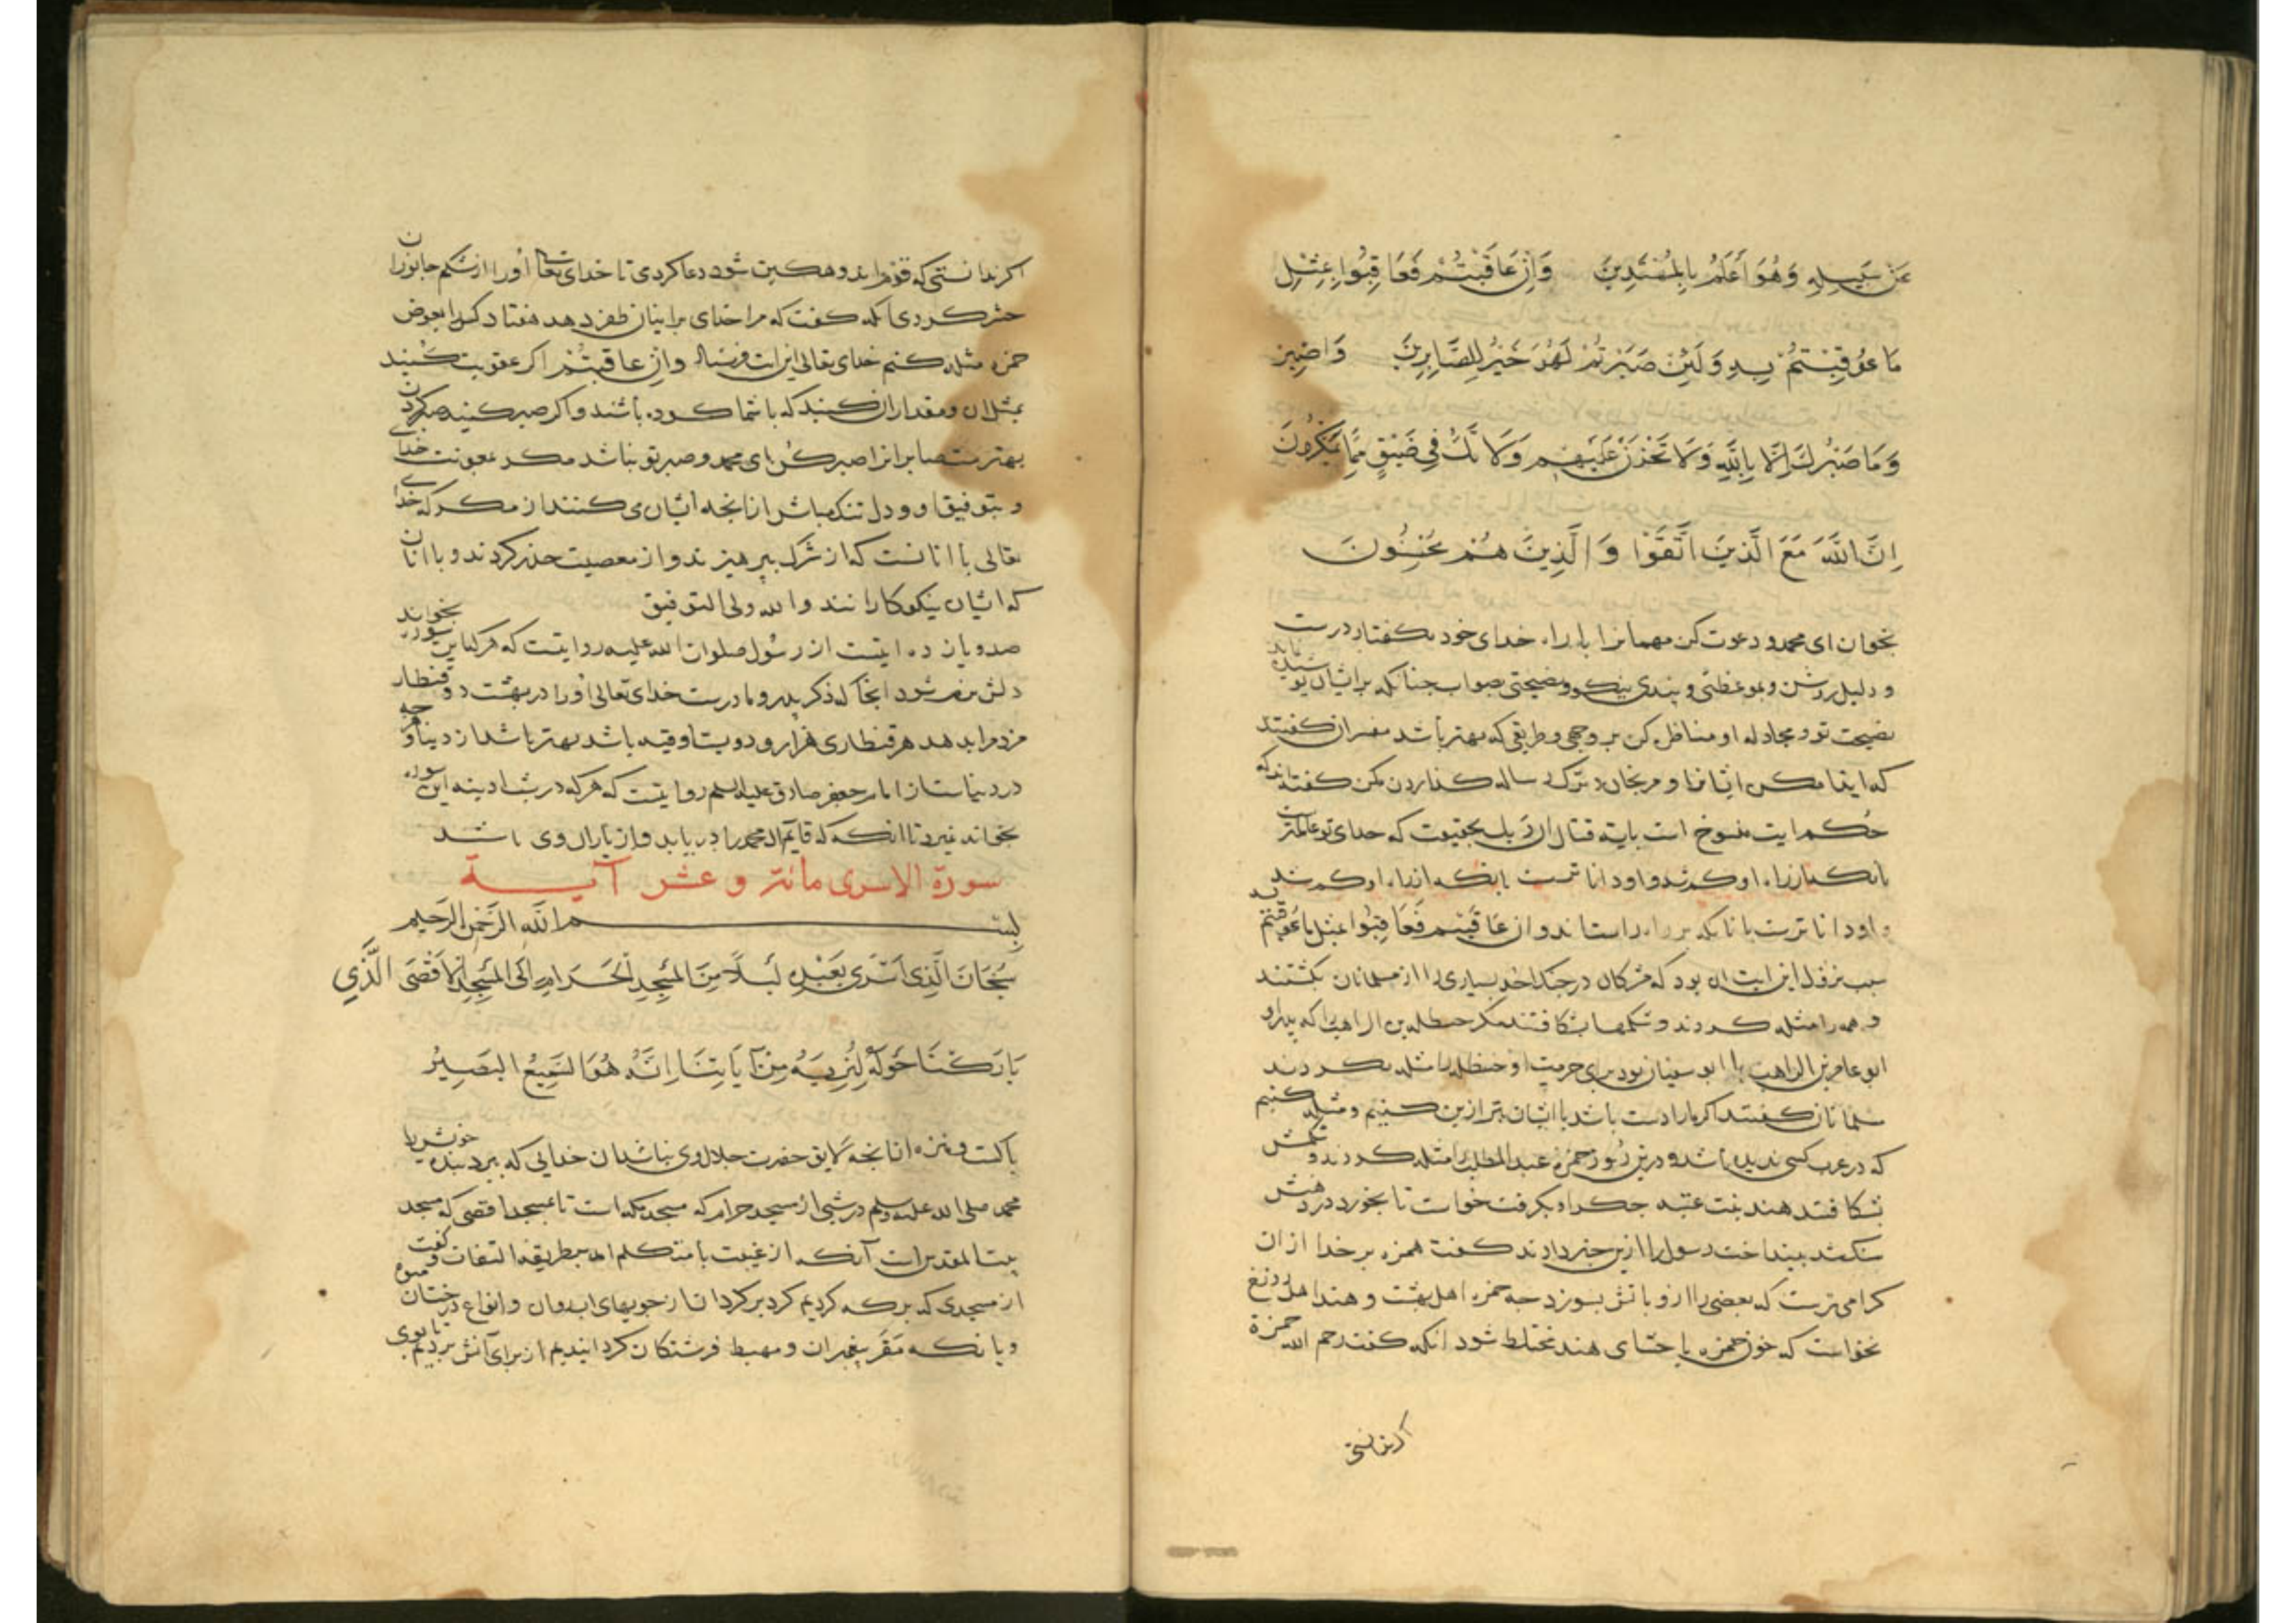 عَنْ سَبِيلِهِ وَهُوَ أَعْلَمُ بِالْمُهْتَدِينَ وَإِنْ عَاقَبْتُمْ فَعَاقِبُوا بِمِثْلِ
مَا عُوقِبْتُمْ بِهِ وَلَئِنْ صَبَرْتُمْ لَهُوَ خَيْرٌ لِلصَّابِرِينَ وَاصْبِرْ
وَمَا صَبْرُكَ إِلَّا بِاللَّهِ وَلَا تَحْزَنْ عَلَيْهِمْ وَلَا تَكُ فِي ضَيْقٍ مِمَّا يَمْكُرُونَ
اِنَّ اللَّهَ مَعَ الَّذِينَ اتَّقَوْا وَالَّذِينَ هُمْ مُحْسِنُونَ
بخوان ای محمد و دعوت کن مردمانرا با راه خدای خود بکفتار درست
و دلیل روشن و بموعظتی و پندی نیکو و نصیحتی بصواب جنانکه بر ایشان پوشیده نماند
نصیحت تو و مجادله و مناظره کن بر وجهی و طریقی که بهتر باشد مفسران کفتند
که ایذا مکن ایشانرا و مرنجان و ترک رسالة کذاردن مکن کفته‌اند که
حکم ایت منسوخ است بایة قتال ان ربك بحقیقت که خدای تو عالمترست
بانکه از راه او کم شد و او داناترست بانکه از راه او کم شد
و او داناترست بانانکه بر راه راستاند وان عاقبتم فعاقبوا بمثل ما عوقبتم به
سبب نزول این ایت ان بود که مشرکان در جنک احد بسیاری را از مسلمانان بکشتند
و همه را مثله کردند و شکمها بشکافتند مکر حنظلة بن الراهب را که پدر او
ابو عامر بن الراهب با ابو سفیان بود برای حرمت او حنظله را مثله نکردند
مسلمانان کفتند اکر ما را دست باشد با ایشان بتر ازین کنیم و مثله کنیم
که در عرب کسی ندیده باشد و درین روز حمزه عبد المطلب را مثله کردند و شکمش
بشکافتند هند بنت عتبه جکر او بکرفت خواست تا بخورد در دهنش
سنک شد بینداخت رسول را ازین خبر دادند کفت حمزه بر خدا از ان
کرامی‌ترست که بعضی را از او باتش بسوزد جه حمزه اهل بهشت و هند اهل دوزخ
نخواست که خون حمزه با حشای هند مختلط شود انکه کفت رحم الله حمزة
اکر ندانستی
اکر ندانستی که قوم اندوهکین شوند دعا کردی تا خدای تعالی اورا از شکم جانوران
حشر کردی انکه کفت که مرا خدای بر ایشان ظفر دهد هفتاد کس را بعوض
حمزه مثله کنم خدای تعالی این ایت فرستاد وان عاقبتم اکر عقوبت کنید
بمثل ان و مقدار ان کنید که با شما کرده باشند و اکر صبر کنید صبر کردن
بهترست صابرانرا صبر کن ای محمد و صبر تو نباشد مکر بمعونت خدای
و بتوفیق او و دل تنک مباش از انجه ایشان می‌کنند از مکر که خدای
تعالی با انانست که از شرک بپرهیزند و از معصیت حذر کردند و با انان
که ایشان نیکوکارانند والله ولی التوفیق
صد و یازده ایتست از رسول صلوات الله علیه روایتست که هر که این سوره بخواند
دلش نرم شود انجا که ذکر پدر و مادرست خدای تعالی اورا در بهشت دو قنطار
مزد مر او را بدهد هر قنطاری هزار و دویست اوقیه باشد بهتر باشد از دنیا و هر جه
در دنیاست از امام جعفر صادق علیه السلم روایتست که هر که در شب ادینه این سوره
بخواند نمیرد تا انکه که قایم ال محمد را دریابد و از یاران وی باشد
سورة الاسری مائة و عشر آیــة
بسم الله الرحمن الرحیم
سُبْحَانَ الَّذِی أَسْرَی بِعَبْدِهِ لَیْلًا مِنَ الْمَسْجِدِ الْحَرَامِ إِلَی الْمَسْجِدِ الْأَقْصَی الَّذِی
بَارَكْنَا حَوْلَهُ لِنُرِیَهُ مِنْ آیَاتِنَا إِنَّهُ هُوَ السَّمِیعُ الْبَصِیرُ
پاکست و منزه از انجه لایق حضرت جلال وی نباشد ان خدایی که ببرد بنده خویش را
محمد صلی الله علیه وسلم در شبی از مسجد حرام که مسجد مکه است تا بمسجد اقصی که مسجد
بیت المقدس است آنکه از غیبت با متکلم امد بطریقة التفات و کفت
از مسجدی که برکه کردیم کرد بر کرد ان از جویهای اب روان و انواع درختان میوه
و بانکه مقر پیغمبران و مهبط فرشتکان کردانیدیم از برای آنش بردیم تا بوی